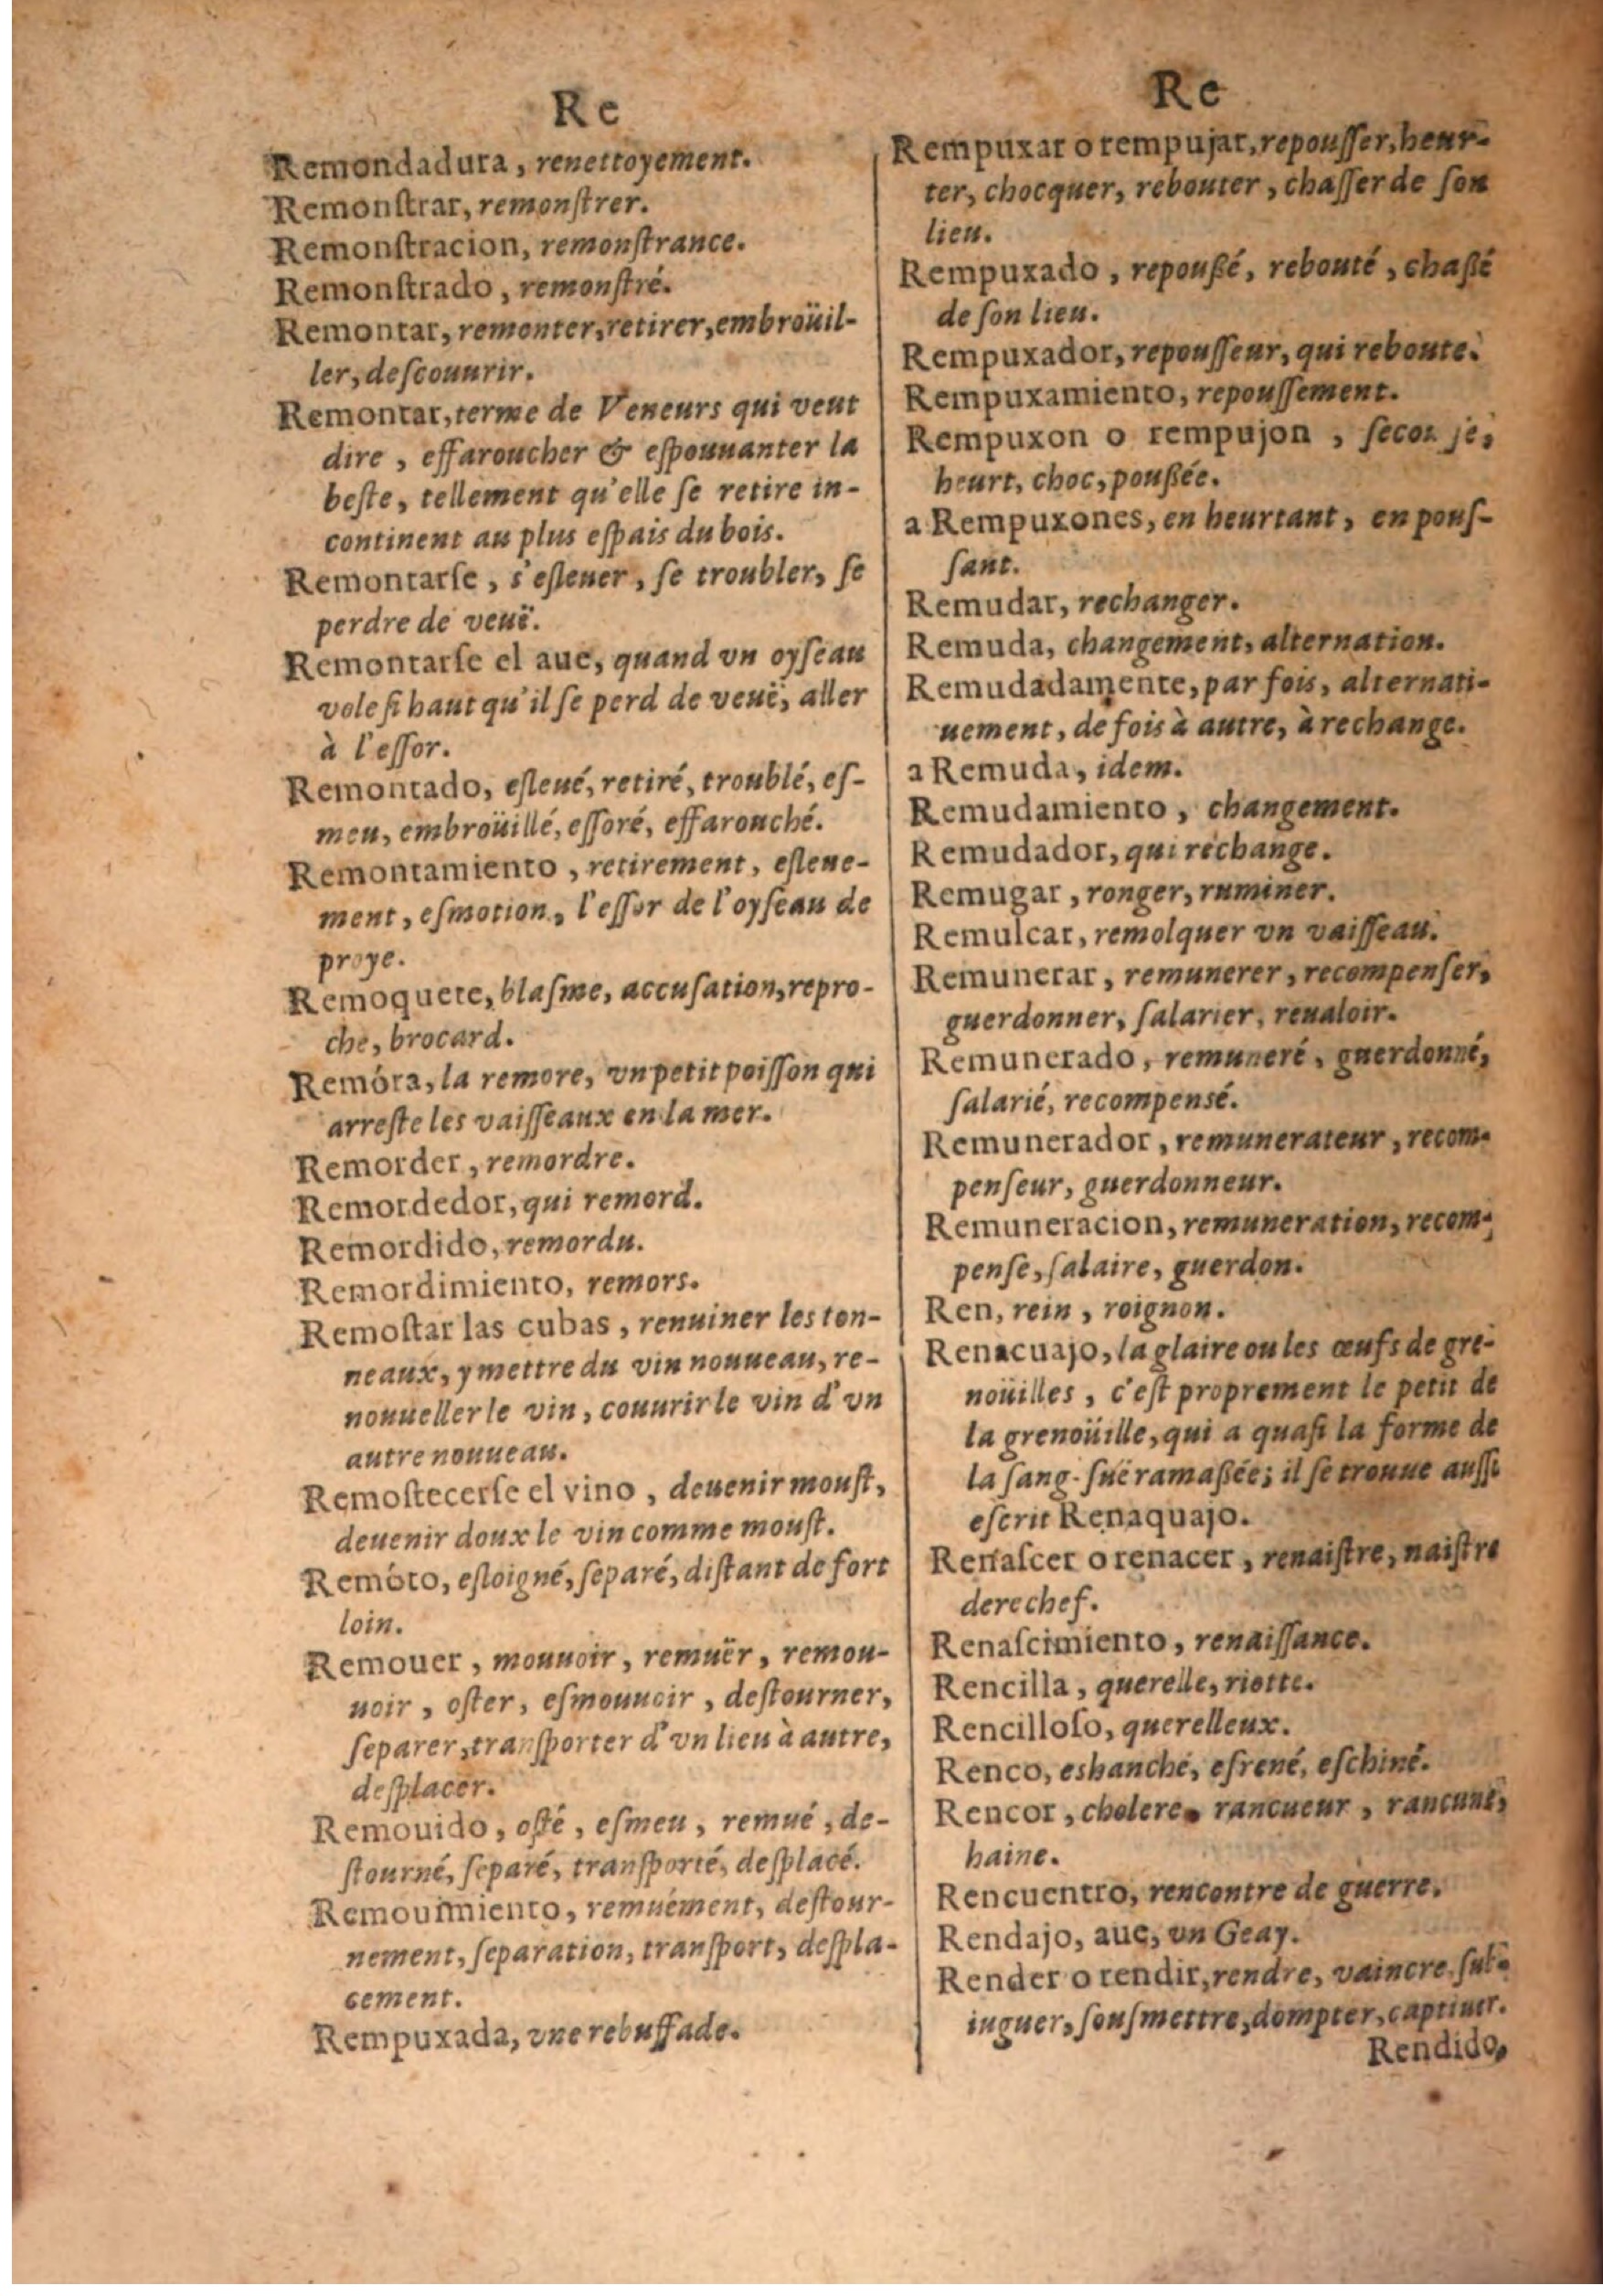 Re
Remondadura, renettoyement.
Remonſtrar, remonſtrer.
Remonſtracion, remonſtrance.
Remonſtrado, remonſtré.
Remontar, remonter, retirer, embroüil-
ler, deſcouurir.
Remontar, terme de Veneurs qui veut
dire, effaroucher & eſpouuanter la
beſte, tellement qu'elle ſe retire in-
continent au plus eſpais du bois.
Remontarſe, s'eſleuer, ſe troubler, ſe
perdre de veuë.
Remontarſe el aue, quand vn oyſeau
vole ſi haut qu'il ſe perd de veuë, aller
à l'eſſor.
Remontado, eſleué, retiré, troublé, eſ-
meu, embroüillé, eſſoré, effarouché.
Remontamiento, retirement, eſleue-
ment, eſmotion, l'eſſor de l'oyſeau de
proye.
Remoquete, blaſme, accuſation, repro-
che, brocard.
Remóra, la remore, vn petit poiſſon qui
arreſte les vaiſſeaux en la mer.
Remorder, remordre.
Remordedor, qui remord.
Remordido, remordu.
Remordimiento, remors.
Remoſtar las cubas, renuiner les ton-
neaux, y mettre du vin nouueau, re-
nouueller le vin, couurir le vin d'vn
autre nouueau.
Remoſtecerſe el vino, deuenir mouſt,
deuenir doux le vin comme mouſt.
Remóto, eſloigné, ſeparé, diſtant de fort
loin.
Remouer, mouuoir, remuër, remou-
uoir, oſter, eſmouuoir, deſtourner,
ſeparer, tranſporter d'vn lieu à autre,
deſplacer.
Remouido, oſté, eſmeu, remué, de-
ſtourné, ſeparé, tranſporté, deſplacé.
Remouimiento, remuëment, deſtour-
nement, ſeparation, tranſport, deſpla-
cement.
Rempuxada, vne rebuffade.
Re
Rempuxar o rempujar, repouſſer, heur-
ter, chocquer, rebouter, chaſſer de ſon
lieu.
Rempuxado, repoußé, rebouté, chaßé
de ſon lieu.
Rempuxador, repouſſeur, qui reboute.
Rempuxamiento, repouſſement.
Rempuxon o rempujon,
heurt, choc, poußée.
a Rempuxones, en heurtant, en pouſ-
ſant.
Remudar, rechanger.
Remuda, changement, alternation.
Remudadamente, par fois, alternati-
uement, de fois à autre, à rechange.
a Remuda, idem.
Remudamiento, changement.
Remudador, qui rechange.
Remugar, ronger, ruminer.
Remulcar, remolquer vn vaiſſeau.
Remunerar, remunerer, recompenſer,
guerdonner, ſalarier, reualoir.
Remunerado, remuneré, guerdonné,
ſalarié, recompensé.
Remunerador, remunerateur, recom-
penſeur, guerdonneur.
Remuneracion, remuneration, recom-
penſe, ſalaire, guerdon.
Ren, rein, roignon.
Renacuajo, la glaire ou les œufs de gre-
noüilles, c'eſt proprement le petit de
la grenoüille, qui a quaſi la forme de
la sang-suë ramaßée; il ſe trouue auſſi
eſcrit Renaquajo.
Renaſcer o renacer, renaiſtre, naiſtre
derechef.
Renaſcimiento, renaiſſance.
Rencilla, querelle, riotte.
Rencilloſo, querelleux.
Renco, eshanché, eſrené, eſchiné.
Rencor, cholere, rancueur, rancune,
haine.
Rencuentro, rencontre de guerre.
Rendajo, aue, vn Geay.
Render o rendir, rendre, vaincre, ſub-
iuguer, ſouſmettre, dompter, captiuer.
Rendido,